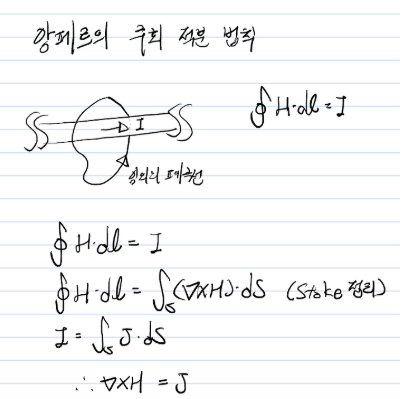 앙페르의 주회 적분 법칙
∮H·dl = I
I
임의의 폐곡선
∮H·dl = I
∮H·dl = ∫ₛ(∇×H)·dS (Stoke 정리)
I = ∫ₛ J·dS
∴ ∇×H = J